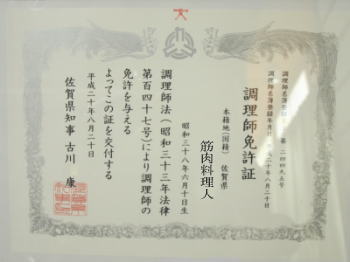 調理師名簿登録番号 第二四四九五号
調理師名簿登録年月日 平成二十年八月二十日
調理師免許証
本籍地(国籍) 佐賀県
筋肉料理人
昭和三十八年六月十日生
調理師法(昭和三十三年法律
第百四十七号)により調理師の
免許を与える
よってこの証を交付する
平成二十年八月二十日
佐賀県知事 古川 康